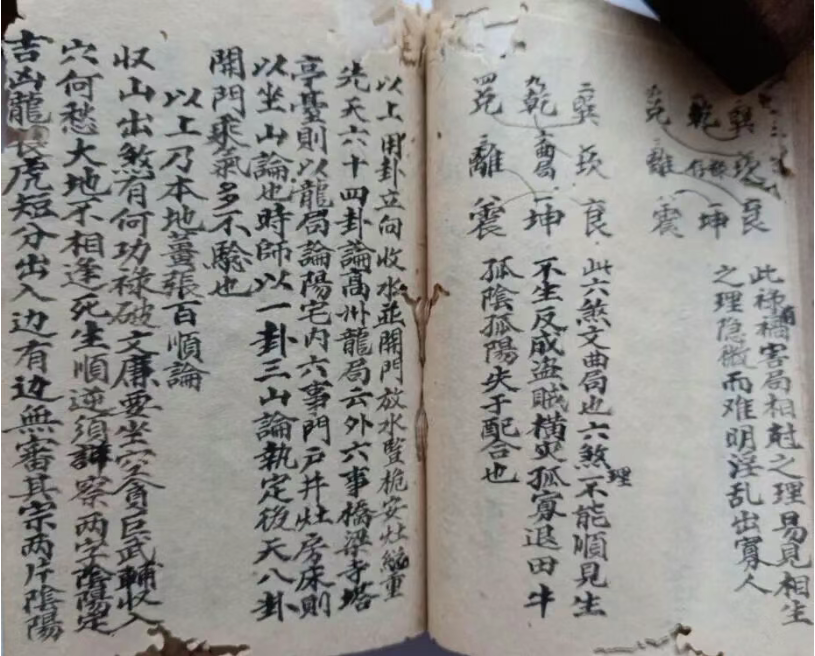 巽 坎 艮
乾 坤
兌 離 震
此祿禍害局相尅之理易見相生
之理隐微而难明淫乱出寡人
二巽 坎 艮
九乾 曲局 一坤
四兌 三離 震
此六煞文曲局也六煞理一不能順見生
不生反成盗贼横灾孤寡退田牛
孤陰孤陽失于配合也
以上用卦立向收水並開門放水豎桅安灶総重
先天六十四卦論高州龍局六外六事橋梁寺塔
亭臺則以龍局論陽宅内六事門户井灶房床則
以坐山論也時師以一卦三山論執定後天八卦
開門乘氣多不驗也
以上乃本地薑張百順論
収山出煞有何功祿破文廉要坐穴貪巨武輔收入
穴何愁大地不相逢死生順逆須詳察两字陰陽定
吉凶龍長虎短分出入边有边無審其宗两片陰陽